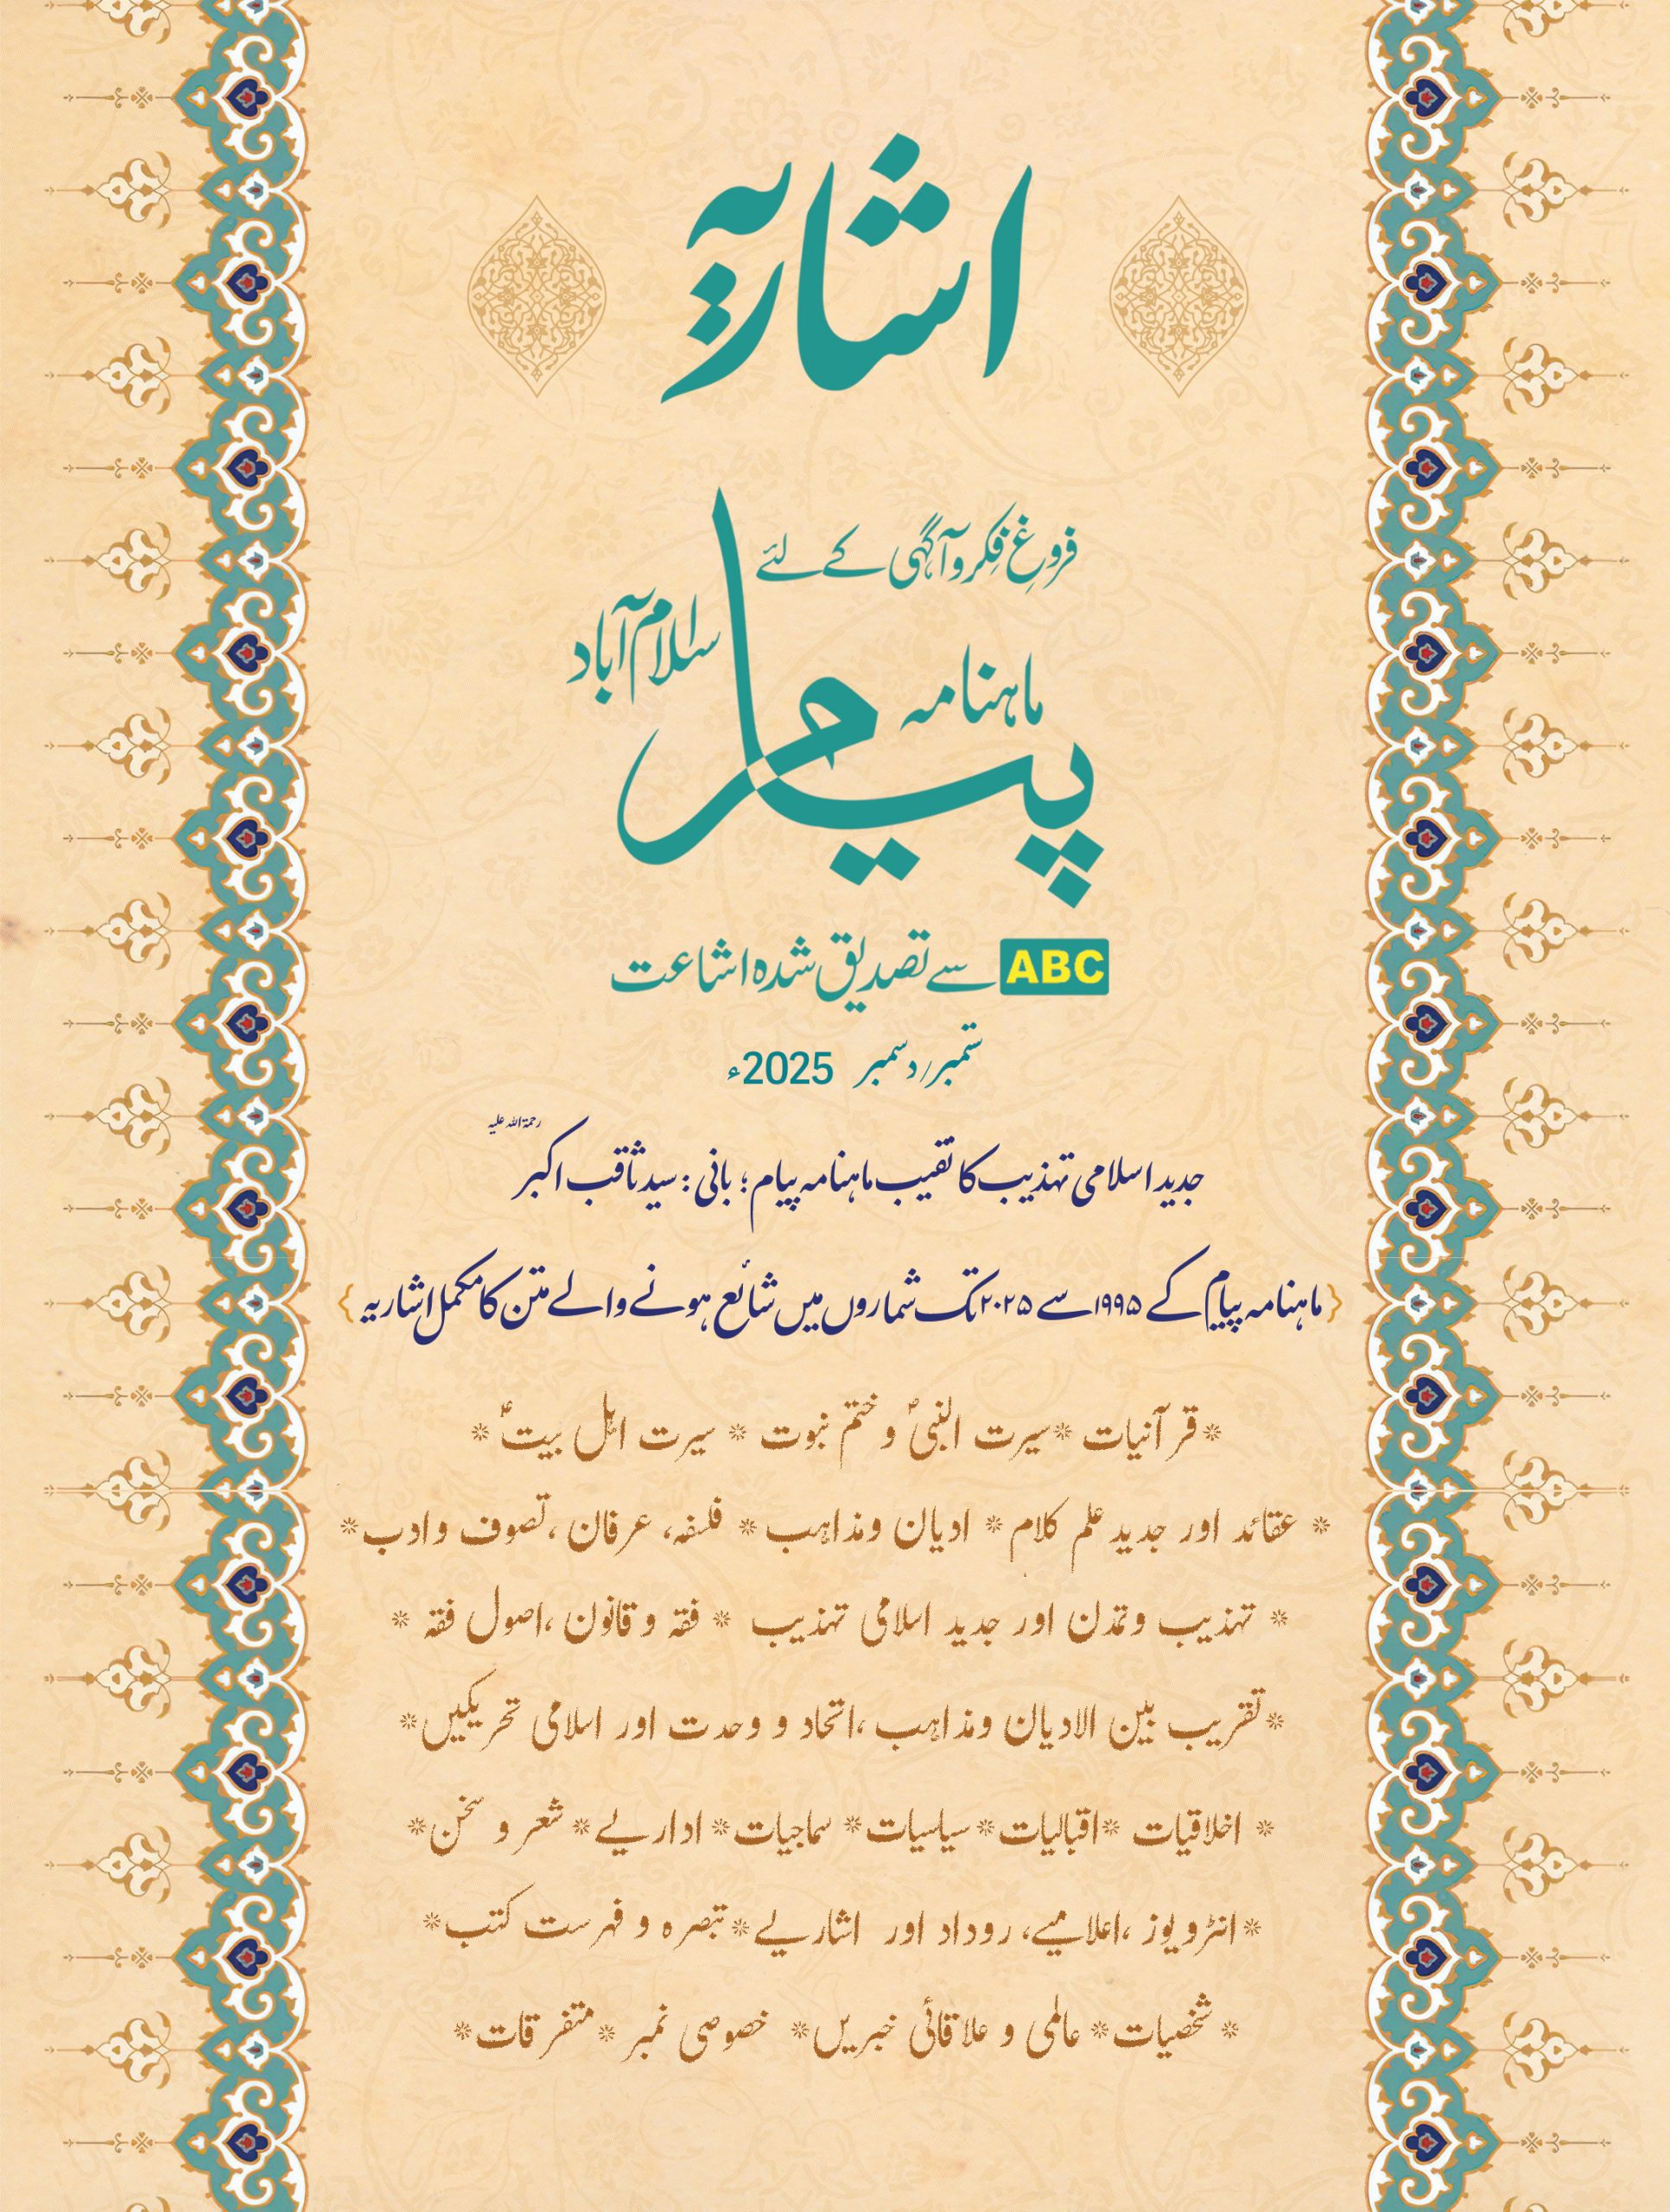 اشاریہ
فروغِ فکر و آگہی کے لئے
ماہنامہ پیام اسلام آباد
ABC سے تصدیق شدہ اشاعت
ستمبر/دسمبر 2025ء
جدید اسلامی تہذیب کا نقیب ماہنامہ پیام؛ بانی: سید ثاقب اکبر رحمۃ اللہ علیہ
{ماہنامہ پیام کے ۱۹۹۵ سے ۲۰۲۵ تک شماروں میں شائع ہونے والے متن کا مکمل اشاریہ}
*قرآنیات *سیرت النبیؐ و ختم نبوت * سیرت اہل بیتؑ *
* عقائد اور جدید علم کلام * ادیان و مذاہب * فلسفہ، عرفان، تصوف و ادب *
* تہذیب و تمدن اور جدید اسلامی تہذیب * فقہ و قانون، اصول فقہ *
*تقریب بین الادیان و مذاہب، اتحاد و وحدت اور اسلامی تحریکیں*
* اخلاقیات *اقبالیات *سیاسیات* سماجیات* اداریے* شعر و سخن*
*انٹرویوز، اعلامیے، روداد اور اشاریے* تبصرہ و فہرست کتب*
* شخصیات* عالمی و علاقائی خبریں* خصوصی نمبر * متفرقات*